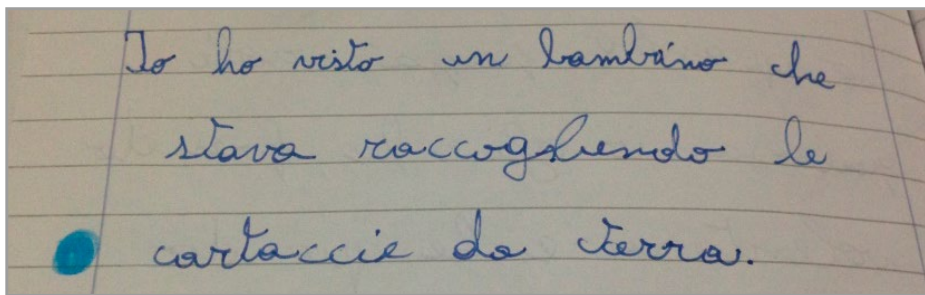 Io ho visto un bambino che
stava raccogliendo le
cartaccie da terra.